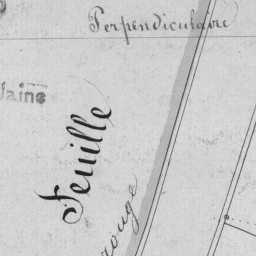 Perpendiculaire
laine
Feuille
rouge